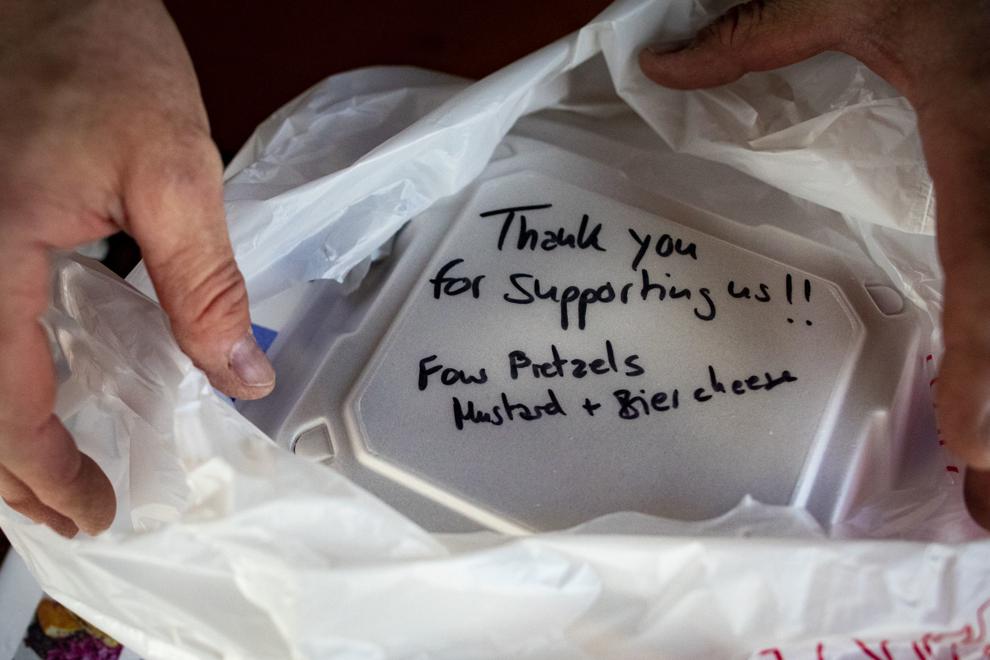 Thank you
for supporting us!!
Four Pretzels
Mustard + Bier cheese